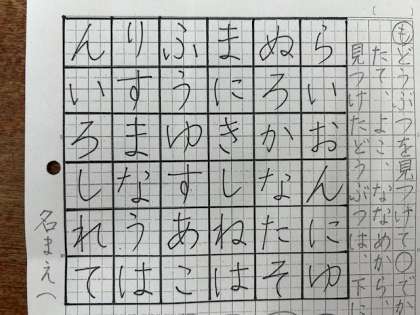 もどうぶつを見つけて○でか
たて、よこ、ななめから、
見つけたどうぶつは、下に、
らいおんにゆ
ぬろかなたそ
まにきしねは
ふうゆすあこ
りすまなうは
んいろしれて
名まえ（